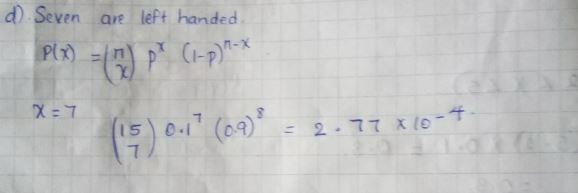 d). Seven are left handed.
P(x) = (n x) p^x (1-p)^n-x
x = 7
(15 7) 0.1^7 (0.9)^8 = 2.77 x 10^-4.